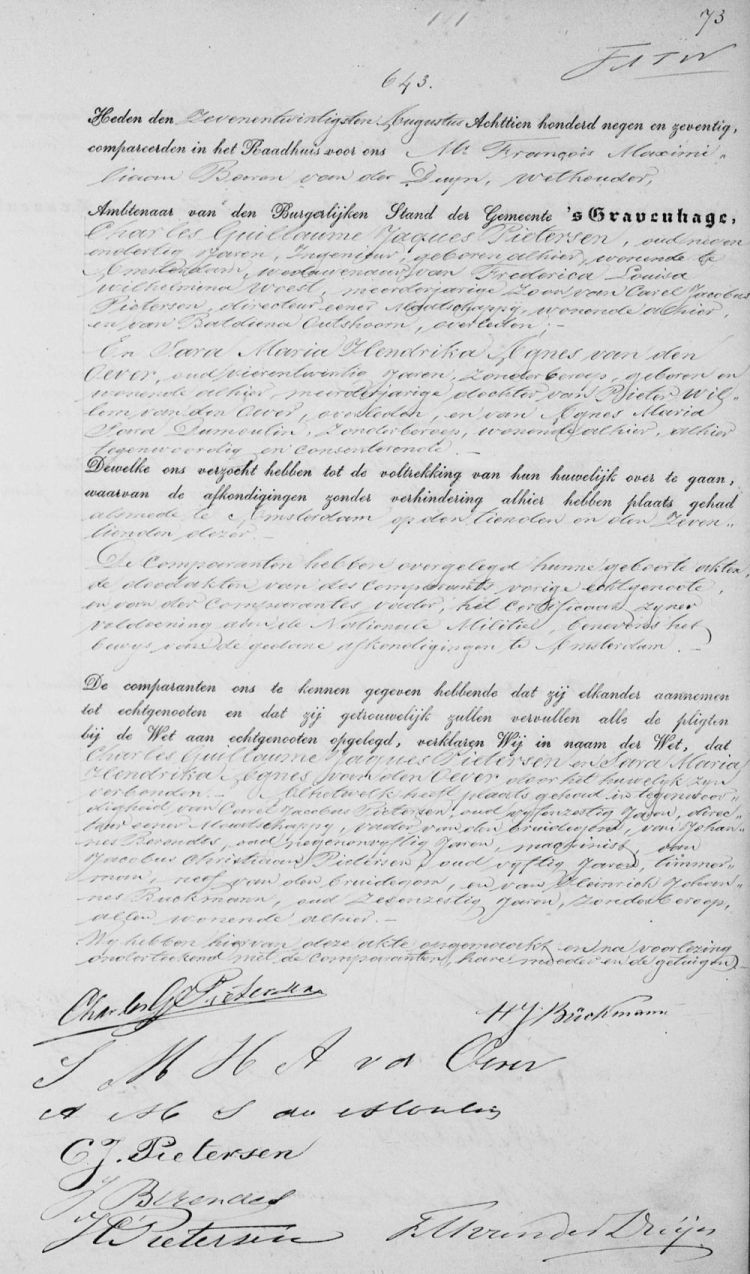 73
643.
Heden den Zevenentwintigsten Augustus Achttien honderd negen en zeventig,
compareerden in het Raadhuis voor ons Mr François Maximi-
liaan Baron van der Duyn, Wethouder,
Ambtenaar van den Burgerlijken Stand der Gemeente 's Gravenhage,
Charles Guillaume Jaques Pietersen, oud negen en
dertig Jaren, Ingenieur, geboren alhier, wonende te
Amsterdam, weduwenaar van Frederica Louisa
Wilhelmina Woest, meerderjarige Zoon van Carel Jacobus
Pietersen, directeur eener Maatschappy, wonende alhier,
en van Baldiena Outshoorn, overleden;-
En Sara Maria Hendrika Agnes van den
Oever, oud vierentwintig Jaren, Zonder beroep, geboren en
wonende alhier, meerderjarige dochter van Pieter Wil-
lem van den Oever, overleden, en van Agnes Maria
Sara Dumoulin, Zonder beroep, wonende alhier, alhier
tegenwoordig en consenterende.-
Dewelke ons verzocht hebben tot de voltrekking van hun huwelijk over te gaan,
waarvan de afkondigingen zonder verhindering alhier hebben plaats gehad
alsmede te Amsterdam op den tienden en den Zeven-
tienden dezer.-
De Comparanten hebben overgelegd hunne geboorte akten,
de doodakten van des Comparants vorige echtgenoote,
en van der Comparantes vader, het Certificaat zyner
voldoening aan de Nationale Militie, benevens het
bewys van de gedane afkondigingen te Amsterdam.-
De comparanten ons te kennen gegeven hebbende dat zij elkander aannemen
tot echtgenooten en dat zij getrouwelijk zullen vervullen alle de pligten
bij de Wet aan echtgenooten opgelegd, verklaren Wij in naam der Wet, dat
Charles Guillaume Jaques Pietersen en Sara Maria
Hendrika Agnes van den Oever door het huwelijk zyn
verbonden.- Al hetwelk heeft plaats gehad in tegenwoor-
digheid van Carel Jacobus Pietersen, oud vyfenzestig Jaren, direc-
teur eener Maatschappy, vader van den bruidegom, van Johan-
nes Berendes, oud negenenvyftig Jaren, machinist, van
Jacobus Christiaan Pietersen, oud vyftig Jaren, timmer-
man, neef van den bruidegom, en van Heinrich Johan-
nes Buckmann, oud Zesenzestig Jaren, Zonder beroep,
allen wonende alhier.-
Wy hebben hiervan deze akte opgemaakt en na voorlezing
onderteekend met de Comparanten, hare moeder en de getuigen.-
Charles G J Pietersen
H J Bückmann
S M H A v d Oever
A M S du Moulin
C J. Pietersen
J Berendes
J C Pietersen
F M van der Duijn